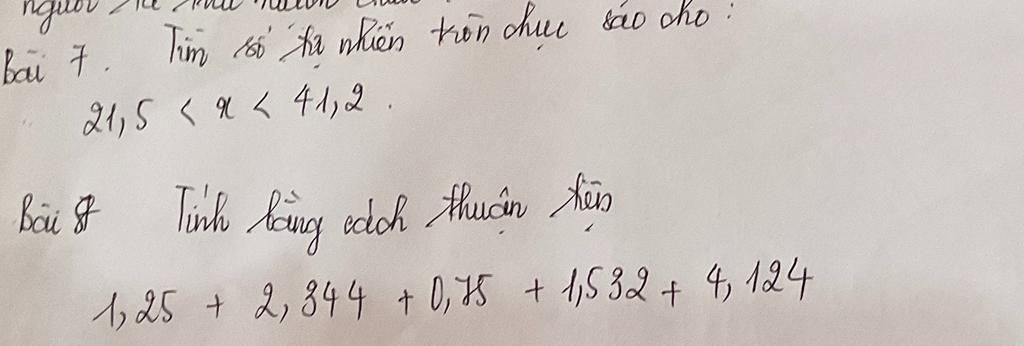 người
Bài 7. Tìm số tự nhiên tròn chục sao cho:
21,5 < x < 41,2.
Bài 8 Tính bằng cách thuận tiện
1,25 + 2,344 + 0,75 + 1,532 + 4,124